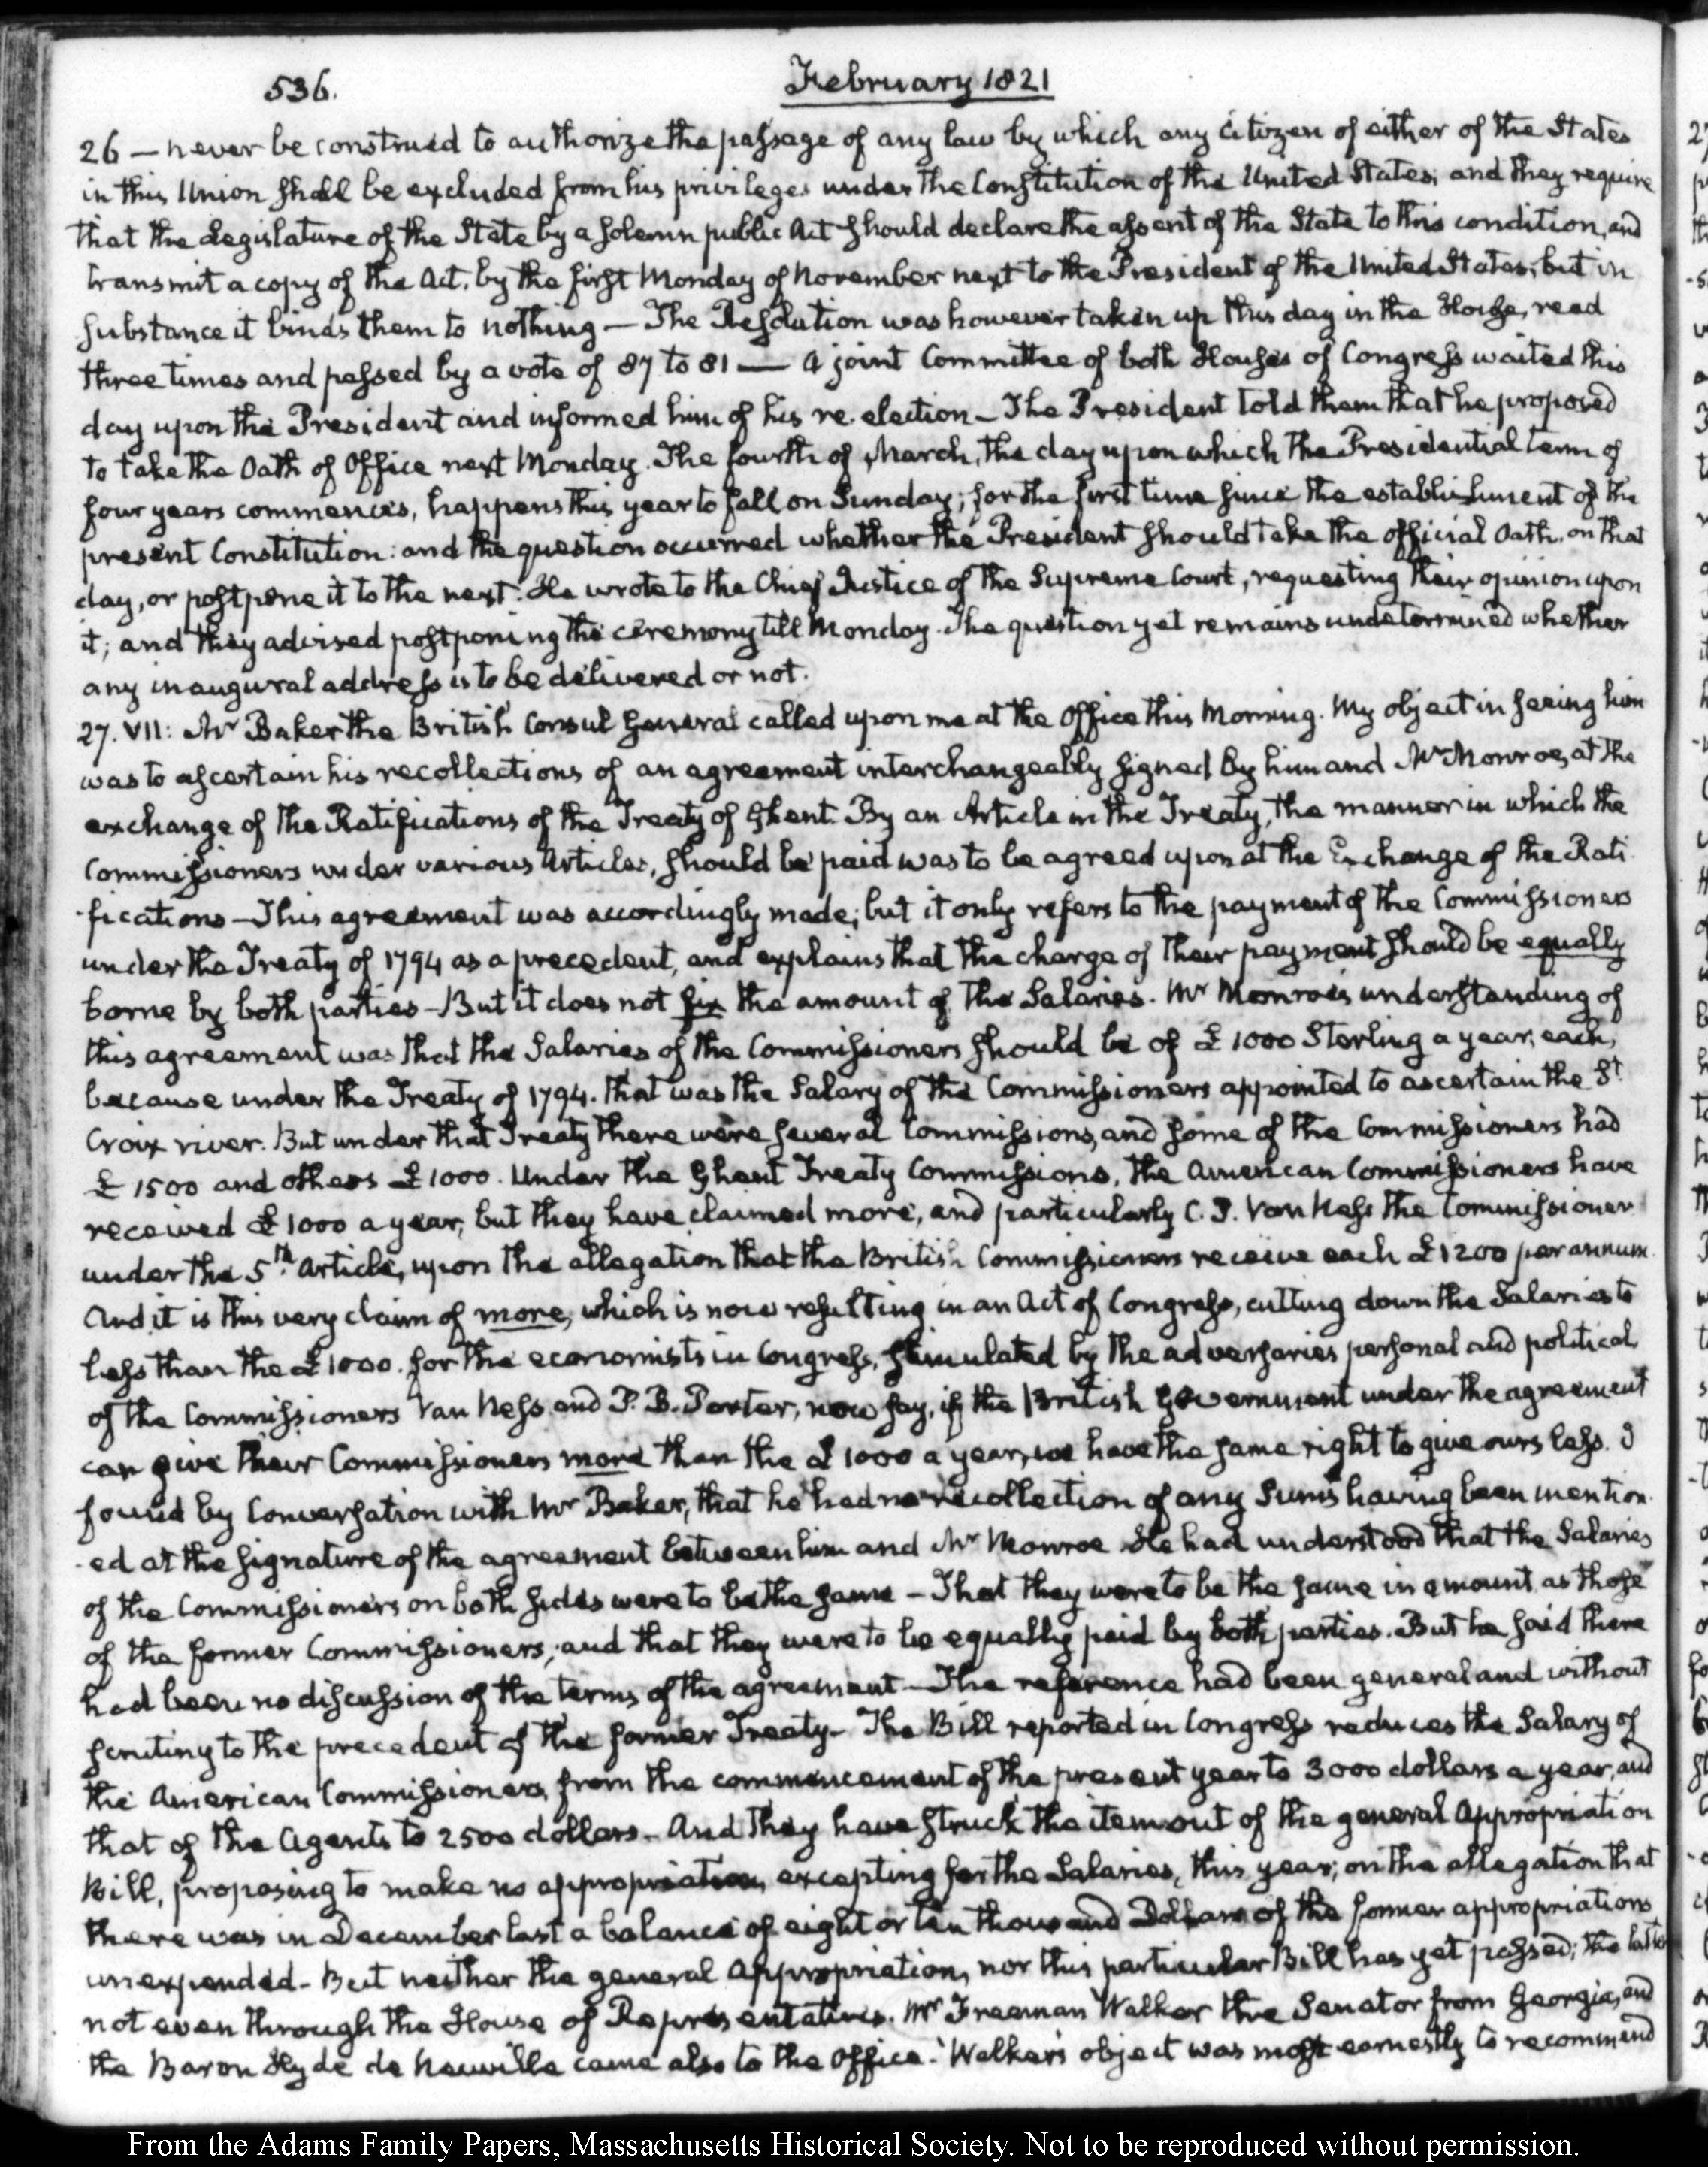 536.
February 1821
26 — never be construed to authorize the passage of any law by which any citizen of either of the States
in this Union shall be excluded from his privileges under the Constitution of the United States; and they require
that the Legislature of the State by a solemn public Act should declare the assent of the State to this condition, and
transmit a copy of the Act, by the first Monday of November next to the President of the United States; but in
substance it binds them to nothing — The Resolution was however taken up this day in the House, read
three times and passed by a vote of 87 to 81 — A joint Committee of both Houses of Congress waited this
day upon the President and informed him of his re-election — The President told them that he proposed
to take the Oath of Office next Monday. The fourth of March, the day upon which the Presidential term of
four years commences, happens this year to fall on Sunday; for the first time since the establishment of the
present Constitution: and the question occurred whether the President should take the official Oath, on that
day, or postpone it to the next. He wrote to the Chief Justice of the Supreme Court, requesting their opinion upon
it; and they advised postponing the ceremony till Monday. The question yet remains undetermined whether
any inaugural address is to be delivered or not.
27. VII: Mr Baker the British Consul General called upon me at the Office this Morning. My object in seeing him
was to ascertain his recollections of an agreement interchangeably signed by him and Mr Monroe, at the
exchange of the Ratifications of the Treaty of Ghent. By an Article in the Treaty, the manner in which the
Commissioners under various Articles, should be paid was to be agreed upon at the Exchange of the Rati-
-fications — This agreement was accordingly made; but it only refers to the payment of the Commissioners
under the Treaty of 1794 as a precedent, and explains that the charge of their payment should be equally
borne by both parties — But it does not fix the amount of the Salaries. Mr Monroe's understanding of
this agreement was that the Salaries of the Commissioners should be of £1000 Sterling a year, each,
because under the Treaty of 1794. that was the Salary of the Commissioners appointed to ascertain the St.
Croix river. But under that Treaty there were several Commissions, and some of the Commissioners had
£1500 and others £1000. Under the Ghent Treaty Commissions, the American Commissioners have
received £1000 a year; but they have claimed more, and particularly C. P. Van Ness the Commissioner
under the 5th Article, upon the allegation that the British Commissioners receive each £1200 per annum.
And it is this very claim of more, which is now resulting in an Act of Congress, cutting down the Salaries to
less than the £1000. for the economists in Congress, stimulated by the adversaries personal and political
of the Commissioners Van Ness and P. B. Porter, now say, if the British Government under the agreement
can give their Commissioners more than the £1000 a year, we have the same right to give ours less. I
found by Conversation with Mr Baker, that he had no recollection of any Sums having been mention-
-ed at the signature of the agreement between him and Mr Monroe. He had understood that the Salaries
of the Commissioners on both sides were to be the same — That they were to be the same in amount as those
of the former Commissioners; and that they were to be equally paid by both parties. But he said there
had been no discussion of the terms of the agreement — The reference had been general and without
scrutiny to the precedent of the former Treaty — The Bill reported in Congress reduces the Salary of
the American Commissioners, from the commencement of the present year to 3000 dollars a year, and
that of the Agents to 2500 dollars — And they have struck the item out of the general Appropriation
Bill, proposing to make no appropriation, excepting for the Salaries, this year; on the allegation that
there was in December last a balance of eight or ten thousand Dollars of the former appropriations
unexpended — But neither the general Appropriation, nor this particular Bill has yet passed; the latter
not even through the House of Representatives. Mr Freeman Walker the Senator from Georgia, and
the Baron Hyde de Neuville came also to the Office. Walker's object was most earnestly to recommend
From the Adams Family Papers, Massachusetts Historical Society. Not to be reproduced without permission.